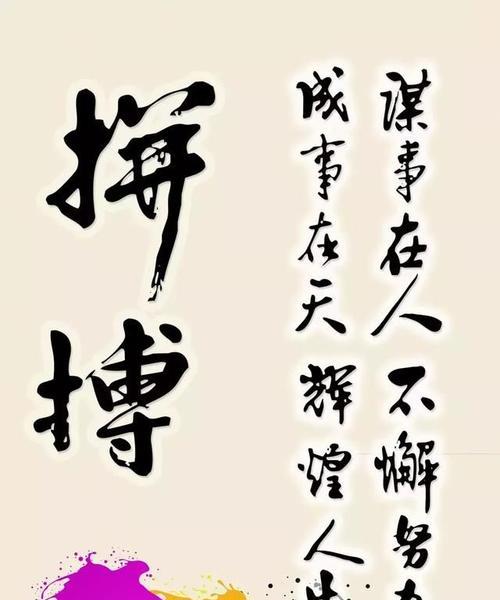 谋事在人 不懈努力
成事在天 辉煌人生
拼搏